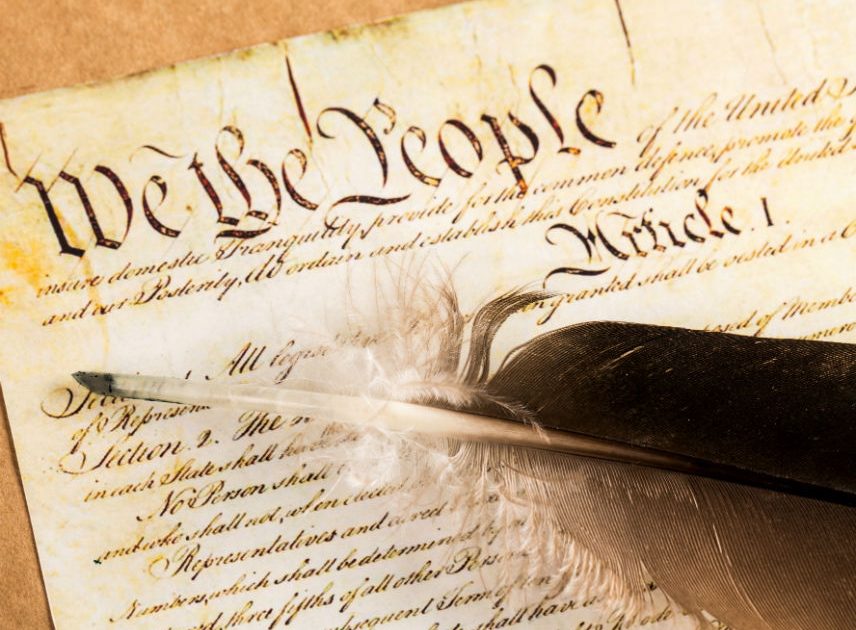 We the People of the United
insure domestic Tranquility, provide for the common defence, promote the
and our Posterity, do ordain and establish this Constitution for the United
Article. I.
granted shall be vested in a
All
of Membe
of Represen
Section. 2. The
in each State shall
No Person shall
and who shall not, when elected
Representatives and direct
Numbers, which shall be determined by
three fifths of all other Persons
subsequent Term of ten
shall have